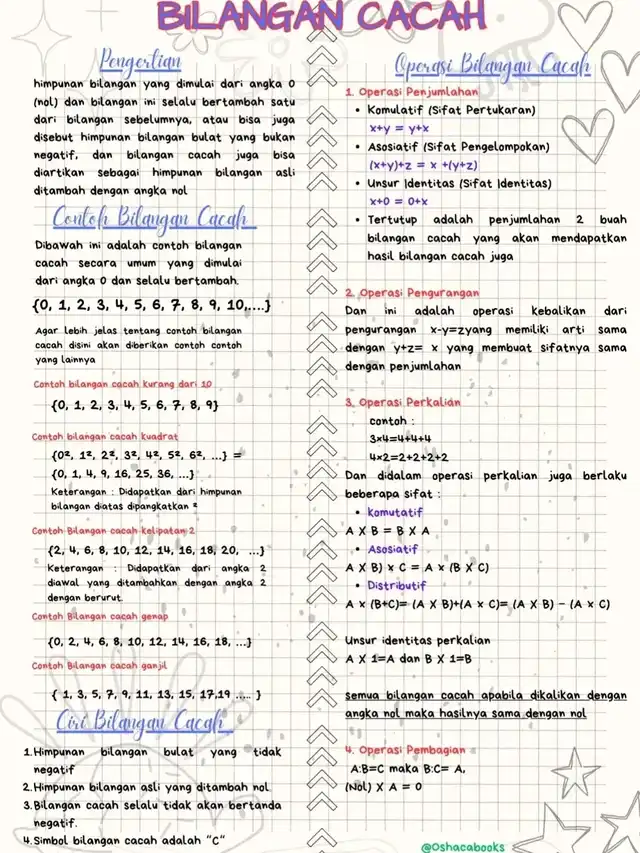 BILANGAN CACAH
Pengertian
himpunan bilangan yang dimulai dari angka 0
(nol) dan bilangan ini selalu bertambah satu
dari bilangan sebelumnya, atau bisa juga
disebut himpunan bilangan bulat yang bukan
negatif, dan bilangan cacah juga bisa
diartikan sebagai himpunan bilangan asli
ditambah dengan angka nol
Contoh Bilangan Cacah
Dibawah ini adalah contoh bilangan
cacah secara umum yang dimulai
dari angka 0 dan selalu bertambah.
{0, 1, 2, 3, 4, 5, 6, 7, 8, 9, 10,....}
Agar lebih jelas tentang contoh bilangan
cacah disini akan diberikan contoh contoh
yang lainnya
Contoh bilangan cacah kurang dari 10
{0, 1, 2, 3, 4, 5, 6, 7, 8, 9}
Contoh bilangan cacah kuadrat
{0², 1², 2², 3², 4², 5², 6², ...} =
{0, 1, 4, 9, 16, 25, 36, ...}
Keterangan : Didapatkan dari himpunan
bilangan diatas dipangkatkan ²
Contoh Bilangan cacah kelipatan 2
{2, 4, 6, 8, 10, 12, 14, 16, 18, 20, ...}
Keterangan : Didapatkan dari angka 2
diawal yang ditambahkan dengan angka 2
dengan berurut.
Contoh Bilangan cacah genap
{0, 2, 4, 6, 8, 10, 12, 14, 16, 18, ...}
Contoh Bilangan cacah ganjil
{ 1, 3, 5, 7, 9, 11, 13, 15, 17,19 ..... }
Ciri Bilangan Cacah
1. Himpunan bilangan bulat yang tidak
negatif
2. Himpunan bilangan asli yang ditambah nol
3. Bilangan cacah selalu tidak akan bertanda
negatif.
4. Simbol bilangan cacah adalah "C"
Operasi Bilangan Cacah
1. Operasi Penjumlahan
• Komulatif (Sifat Pertukaran)
x+y = y+x
• Asosiatif (Sifat Pengelompokan)
(x+y)+z = x +(y+z)
• Unsur Identitas (Sifat Identitas)
x+0 = 0+x
• Tertutup adalah penjumlahan 2 buah
bilangan cacah yang akan mendapatkan
hasil bilangan cacah juga
2. Operasi Pengurangan
Dan ini adalah operasi kebalikan dari
pengurangan x-y=zyang memiliki arti sama
dengan y+z= x yang membuat sifatnya sama
dengan penjumlahan
3. Operasi Perkalian
contoh :
3x4=4+4+4
4x2=2+2+2+2
Dan didalam operasi perkalian juga berlaku
beberapa sifat :
• komutatif
A X B = B X A
• Asosiatif
A X B) x C = A x (B X C)
• Distributif
A x (B+C)= (A X B)+(A x C)= (A X B) - (A x C)
Unsur identitas perkalian
A X 1=A dan B X 1=B
semua bilangan cacah apabila dikalikan dengan
angka nol maka hasilnya sama dengan nol
4. Operasi Pembagian
A:B=C maka B:C= A,
(Nol) X A = 0
@Oshacabooks